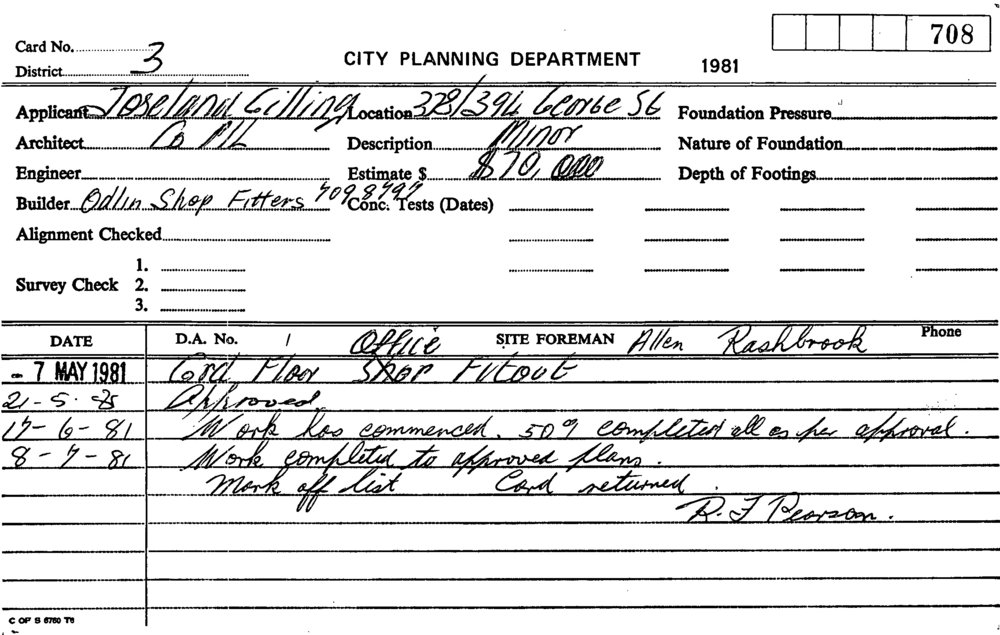 708
Card No. 3
District
CITY PLANNING DEPARTMENT 1981
Applicant Joseland Gilling Location 378/394 George St Foundation Pressure
Architect Co P/L Description Minor Nature of Foundation
Engineer Estimate $ $70,000 Depth of Footings
Builder Odlin Shop Fitters 709 8797 Conc. Tests (Dates)
Alignment Checked
1.
Survey Check 2.
3.
DATE D.A. No. / Office SITE FOREMAN Allen Rashbrook Phone
- 7 MAY 1981 Grd Floor Shop Fitout
21-5-81 Approved
17-6-81 Work has commenced. 50% completed all as per approval.
8-7-81 Work completed to approved plans.
Mark off list Card returned.
R.F Pearson.
C OF S 6760 T6